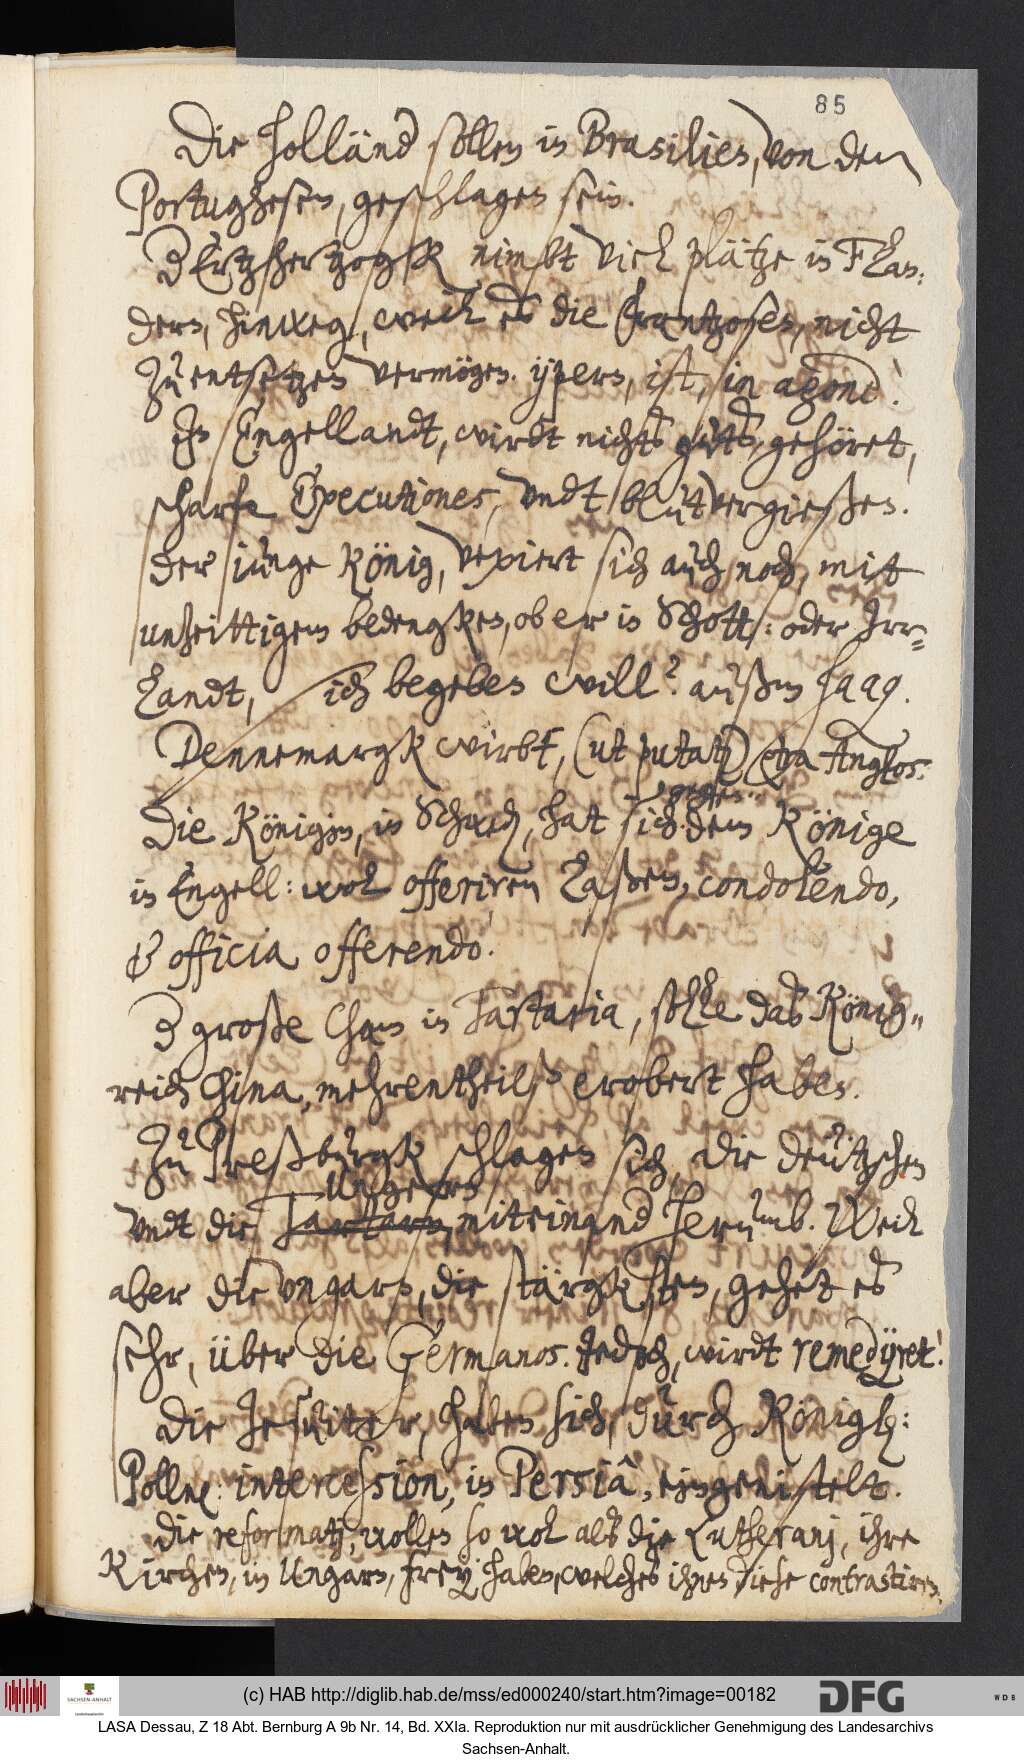 85
Die Holländ sollen in Brasilien, von den
Portughesen, geschlagen sein.
D Ertzhertzogk nimbt viel plätze in Flan:
dern, hinweg, weil es die Frantzosen, nicht
zu entsetzen vermögen. ypern, ist, in agone!
In Engellandt, wirdt nichts guts, gehöret,
scharfe Executiones, vndt blutvergießen.
der iunge König, vexiert sich auch noch, mit
unzeittigem bedengken, ob er in Schott: oder Irr-
landt, sich begeben will? außm Haag.
Dennemargk wirbt, (ut putatur) contra Anglos.
Die Königin, in Schwed, hat sich gegen dem Könige
in Engell: wol offeriren laßen, condolendo,
& officia offerendo!
D große Cham in Tartaria, solle das König-
reich China, mehrentheilß erobert haben.
Zu Preßburgk schlagen sich, die deützschen
vndt die Tartarn Ungern, miteinand herumb. Weil
aber die vngarn, die stärgksten, gehet es
sehr, über die Germanos. Jedoch, wirdt remedijret!
Die Jesuiter, haben sich, durch Königl:
Polln: intercession, in Persiâ, eingenistelt.
die reformati, wollen so wol als die Lutherani, ihre
Kirchen, in Ungarn, frey, haben, welches ihnen diese contrastiren.
(c) HAB http://diglib.hab.de/mss/ed000240/start.htm?image=00182
SACHSEN-ANHALT
DFG
WDB
LASA Dessau, Z 18 Abt. Bernburg A 9b Nr. 14, Bd. XXIa. Reproduktion nur mit ausdrücklicher Genehmigung des Landesarchivs
Sachsen-Anhalt.